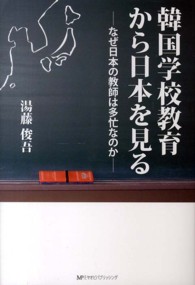 韓国学校教育
から日本を見る
―なぜ日本の教師は多忙なのか―
湯藤 俊吾